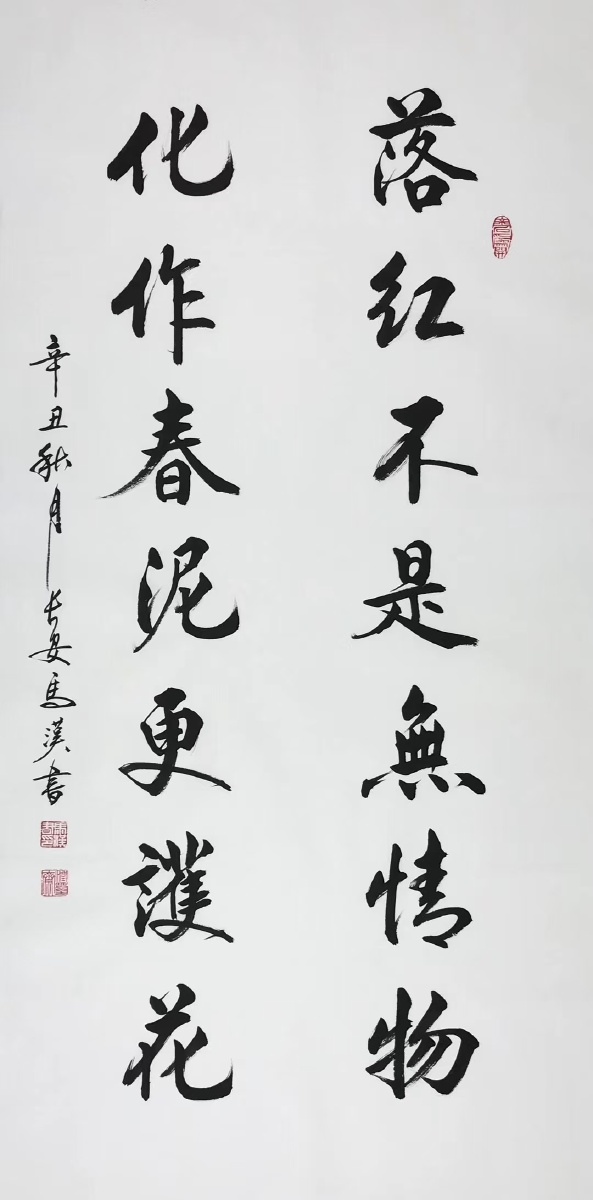 落红不是無情物
化作春泥更護花
辛丑秋月长安馬漢書